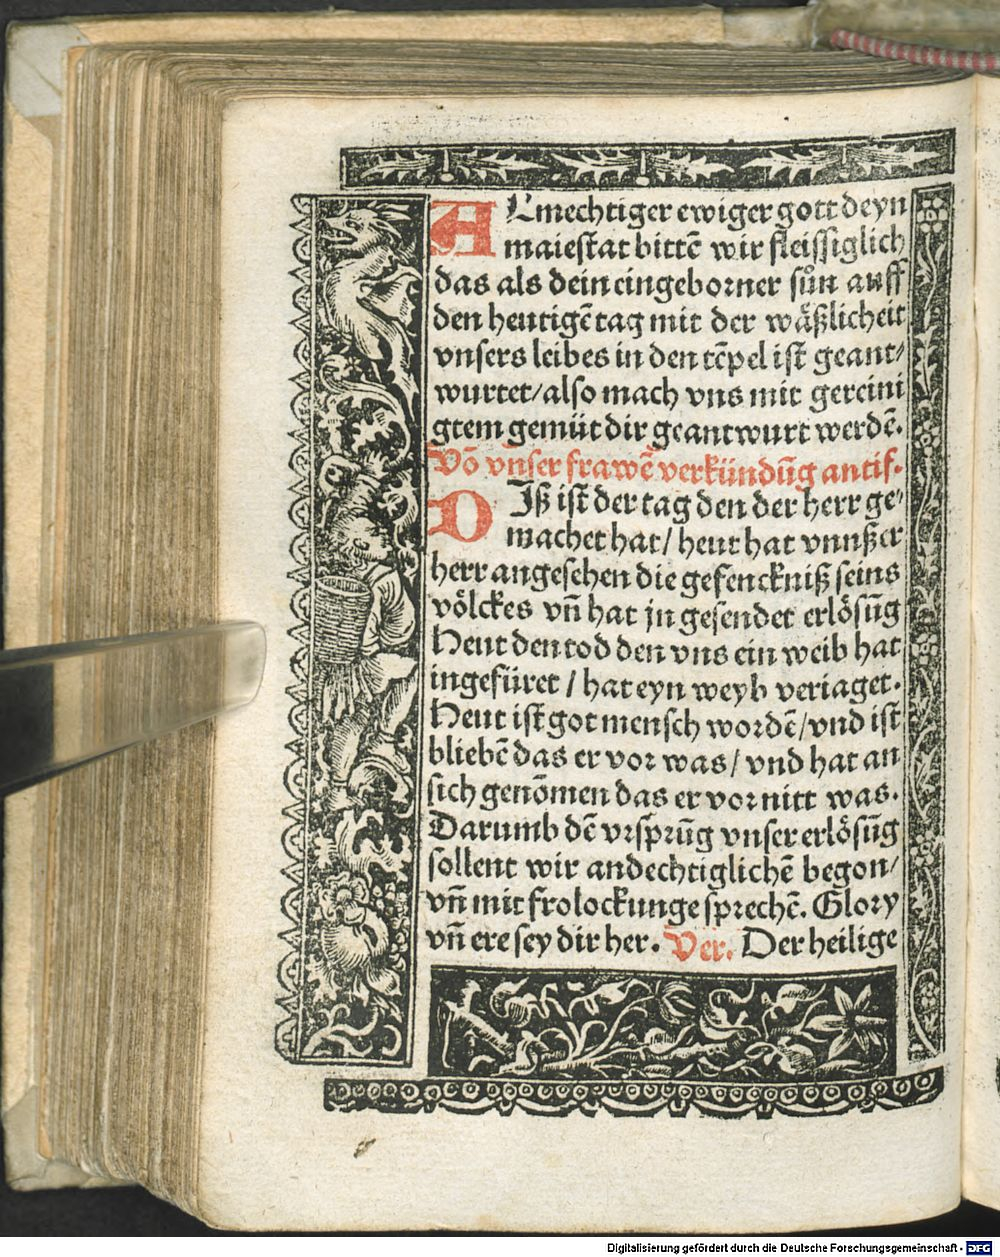 ALmechtiger ewiger gott deyn
maiestat bittē wir fleissiglich
das als dein eingeborner sůn auff
den heutigē tag mit der wäßlicheit
vnsers leibes in den tēpel ist geant/
wurtet/also mach vns mit gereini
gtem gemüt dir geantwurt werdē.
Vō vnser frawē verkündūg antif.
DIß ist der tag den der herr ge/
machet hat/ heut hat vnnßer
herr angesehen die gefenckniß seins
völckes vn̄ hat jn gesendet erlösūg
Heut den tod den vns ein weib hat
ingefüret / hat eyn weyb veriaget.
Heut ist got mensch wordē/vnd ist
bliebē das er vor was/ vnd hat an
sich genōmen das er vor nitt was.
Darumb dē vrsprūg vnser erlösūg
sollent wir andechtiglichē begon/
vn̄ mit frolockunge sprechē. Glory
vn̄ ere sey dir her. Ver. Der heilige
Digitalisierung gefördert durch die Deutsche Forschungsgemeinschaft - DFG